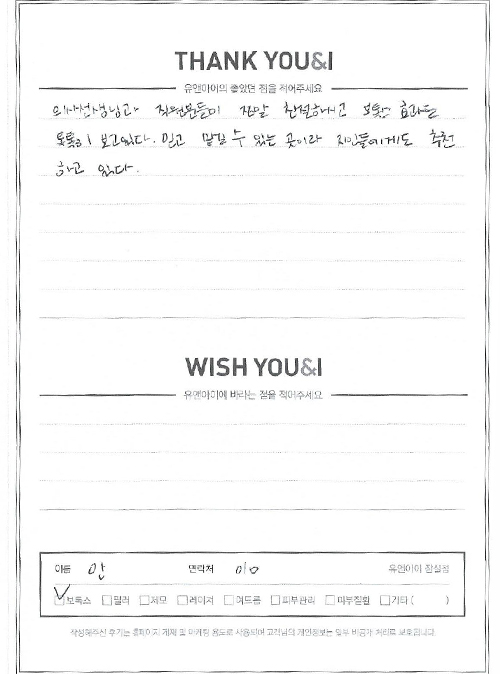 THANK YOU&I
유앤아이의 좋았던 점을 적어주세요
의사선생님과 직원분들이 정말 친절하시고 보톡스 효과를
톡톡히 보고있다. 믿고 맡길 수 있는 곳이라 지인들에게도 추천
하고 있다.
WISH YOU&I
유앤아이에 바라는 점을 적어주세요
이름 안 연락처 010 유앤아이 잠실점
보톡스 필러 제모 레이저 여드름 피부관리 피부질환 기타 ( )
작성해주신 후기는 홈페이지 게재 및 마케팅 용도로 사용되며 고객님의 개인정보는 일부 비공개 처리로 보호됩니다.